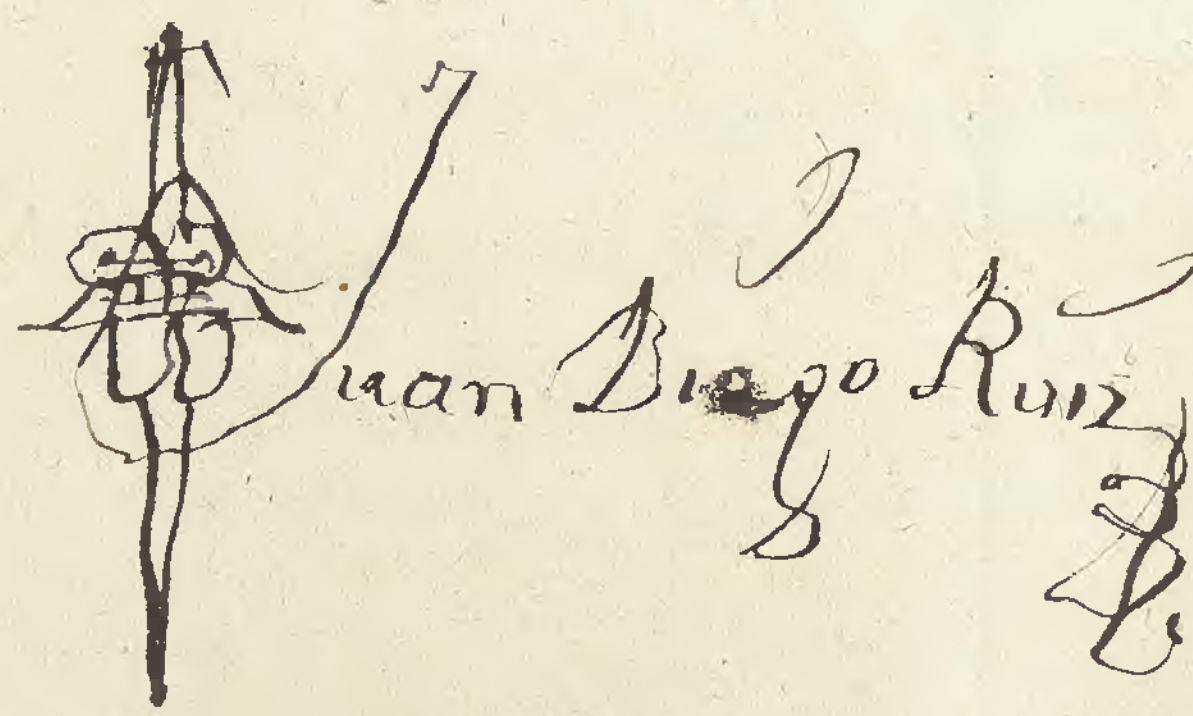 Juan Diego Ruiz